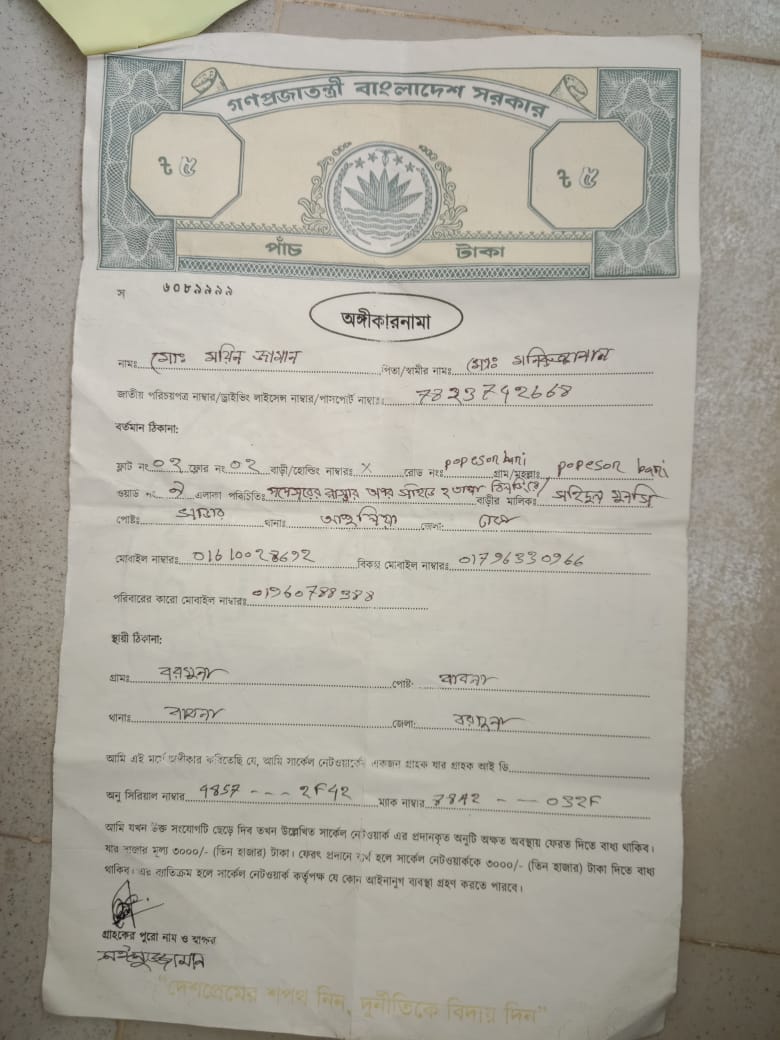 গণপ্রজাতন্ত্রী বাংলাদেশ সরকার
৳ ৫ ৳ ৫
পাঁচ টাকা
স ৬০৮৯৯৯৯
অঙ্গীকারনামা
নামঃ মোঃ জামান পিতা/স্বামীর নামঃ মোঃ মনিরুজ্জামান
জাতীয় পরিচয়পত্র নাম্বার/ড্রাইভিং লাইসেন্স নাম্বার/পাসপোর্ট নাম্বারঃ 7823742668
বর্তমান ঠিকানা:
ফ্লাট নং ০২ ফ্লোর নং ০২ বাড়ী/হোল্ডিং নাম্বারঃ X রোড নংঃ popeson bari গ্রাম/মহল্লাঃ popeson bari
ওয়ার্ড নং এলাকা পরিচিতিঃ রাস্তার ২ তালা বাড়ীর মালিকঃ সহিদুল মুনসি
পোষ্টঃ সাভার থানাঃ আশুলিয়া জেলা: ঢাকা
মোবাইল নাম্বারঃ 01610028692 বিকল্প মোবাইল নাম্বারঃ 01796330966
পরিবারের কারো মোবাইল নাম্বারঃ 01960788388
স্থায়ী ঠিকানা:
গ্রামঃ বরগুনা পোষ্ট: বাবনা
থানাঃ বামনা জেলা: বরগুনা
আমি এই মর্মে অঙ্গীকার করিতেছি যে, আমি সার্কেল নেটওয়ার্কের একজন গ্রাহক যার গ্রাহক আই ডি
অনু সিরিয়াল নাম্বার 4857 --- 2F42 ম্যাক নাম্বার 7842 -- 032F
আমি যখন উক্ত সংযোগটি ছেড়ে দিব তখন উল্লেখিত সার্কেল নেটওয়ার্ক এর প্রদানকৃত অনুটি অক্ষত অবস্থায় ফেরত দিতে বাধ্য থাকিব।
যার বাজার মূল্য ৩০০০/- (তিন হাজার) টাকা। ফেরৎ প্রদানে ব্যর্থ হলে সার্কেল নেটওয়ার্ককে ৩০০০/- (তিন হাজার) টাকা দিতে বাধ্য
থাকিব। এর ব্যতিক্রম হলে সার্কেল নেটওয়ার্ক কর্তৃপক্ষ যে কোন আইনানুগ ব্যবস্থা গ্রহণ করতে পারবে।
গ্রাহকের পুরো নাম ও স্বাক্ষর
"দেশপ্রেমের শপথ নিন, দুর্নীতিকে বিদায় দিন"